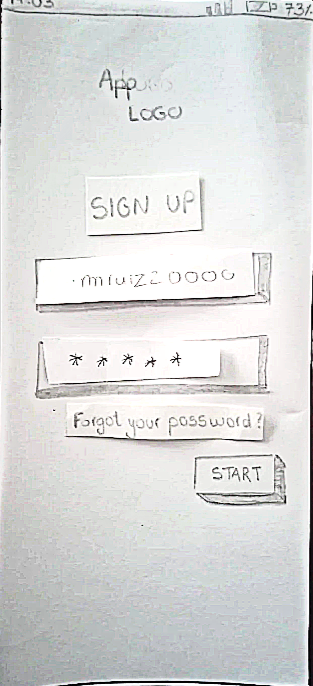 73%
App
LOGO
SIGN UP
mruiz20000
* * * * *
Forgot your password?
START